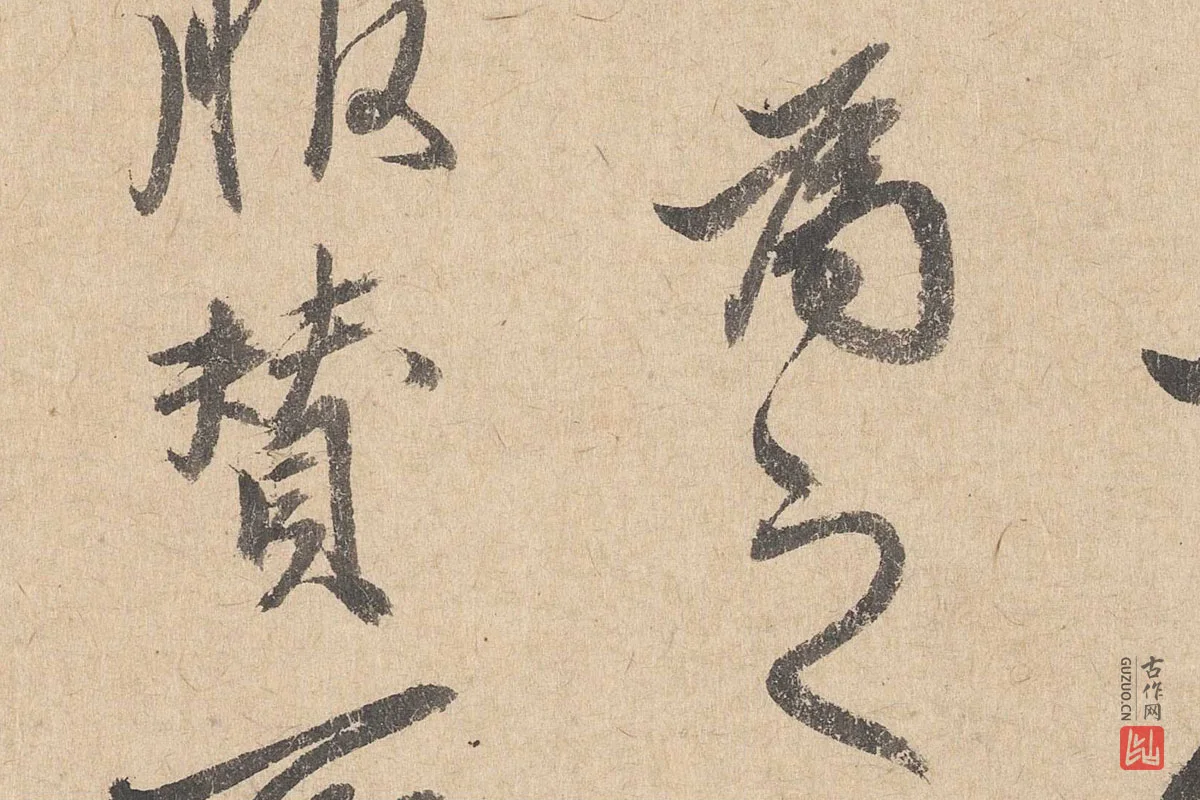 為之
服賛
古作网
GUZUO.CN